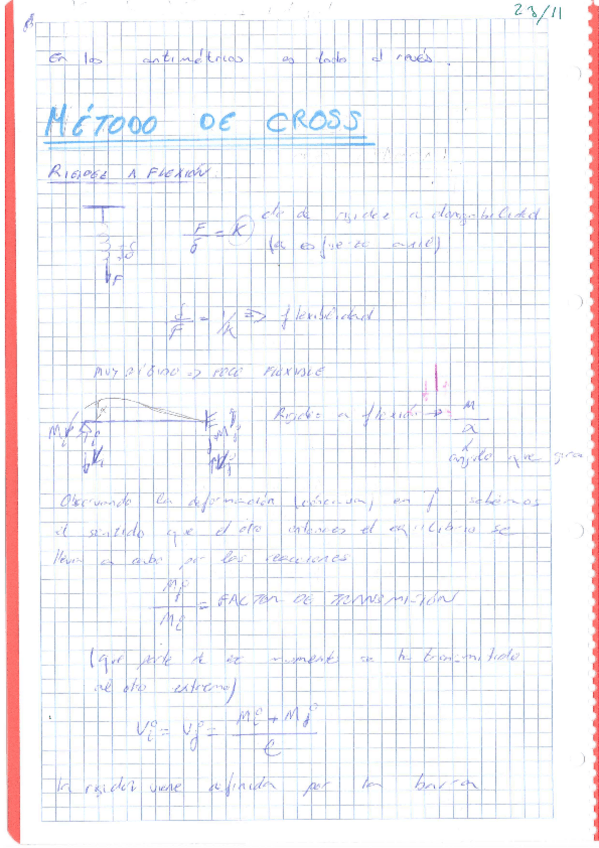 23/11
En los antimétricos es todo al revés.
MÉTODO DE CROSS
RIGIDEZ A FLEXIÓN:
F/δ = K cte de rigidez a
(a esfuerzo axil)
δ/F = 1/K => flexibilidad
MUY RÍGIDO => POCO FLEXIBLE
Rigidez a flexión → M/α
ángulo que gira
Observando la deformación en j sabemos
el sentido que el equilibrio se
lleva a cabo por las reacciones
Mj/Mi = FACTOR DE TRANSMISIÓN
(que parte de ese momento se ha transmitido
al otro extremo)
Vi = Vj = Mi + Mj / L
La rigidez viene definida por la barra